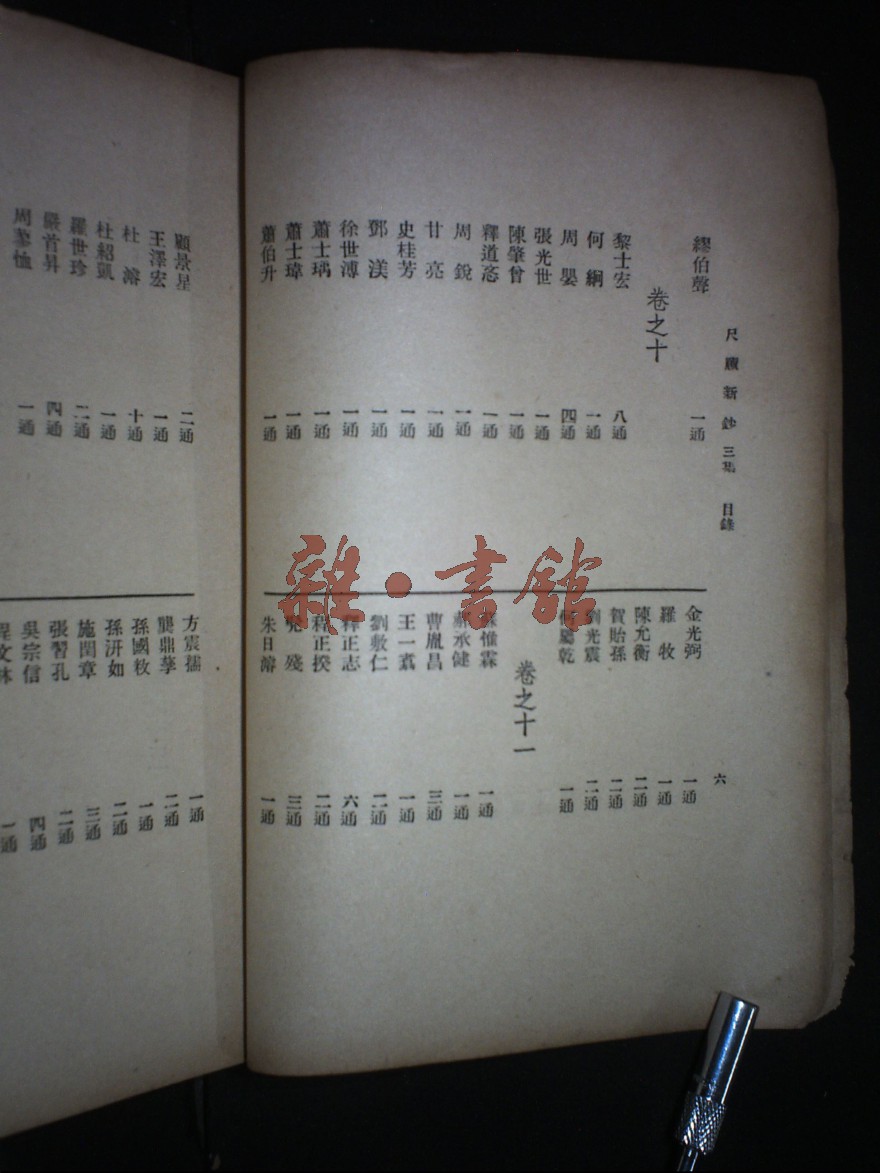 尺牘新鈔三集 目錄
六
繆伯聲 一通
卷之十
黎士宏 八通
何綱 一通
周嬰 四通
張光世 一通
陳肇曾 一通
釋道忞 一通
周銳 一通
甘亮 一通
史桂芳 一通
鄧渼 一通
徐世溥 一通
蕭士瑀 一通
蕭士瑋 一通
蕭伯升 一通
金光弼 一通
羅牧 一通
陳允衡 二通
賀貽孫 二通
光震 二通
乾 一通
卷之十一
惟霖 一通
承健 一通
曹胤昌 三通
王一翥 一通
劉敷仁 二通
釋正志 六通
程正揆 二通
殘 三通
朱日濬 一通
顧景星 二通
王澤宏 一通
杜濬 十通
杜紹凱 一通
羅世珍 二通
嚴首昇 四通
周 恤 一通
方震孺 一通
龔鼎孳 二通
孫國敉 一通
孫汧如 二通
施閏章 三通
張習孔 二通
吳宗信 四通
程文林 一通
雜·書館